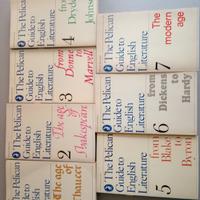 The Pelican
Guide to
English
Literature
The age
of
Chaucer
The Pelican
Guide to
English
Literature
2
The age of
Shakespeare
The Pelican
Guide to
English
Literature
3
from
Donne
to
Marvell
The Pelican
Guide to
English
Literature
4
from
Dryden
to
Johnson
The Pelican
Guide to
English
Literature
5
from
Blake
to
Byron
The Pelican
Guide to
English
Literature
6
from
Dickens
to
Hardy
The Pelican
Guide to
English
Literature
7
The
modern
age